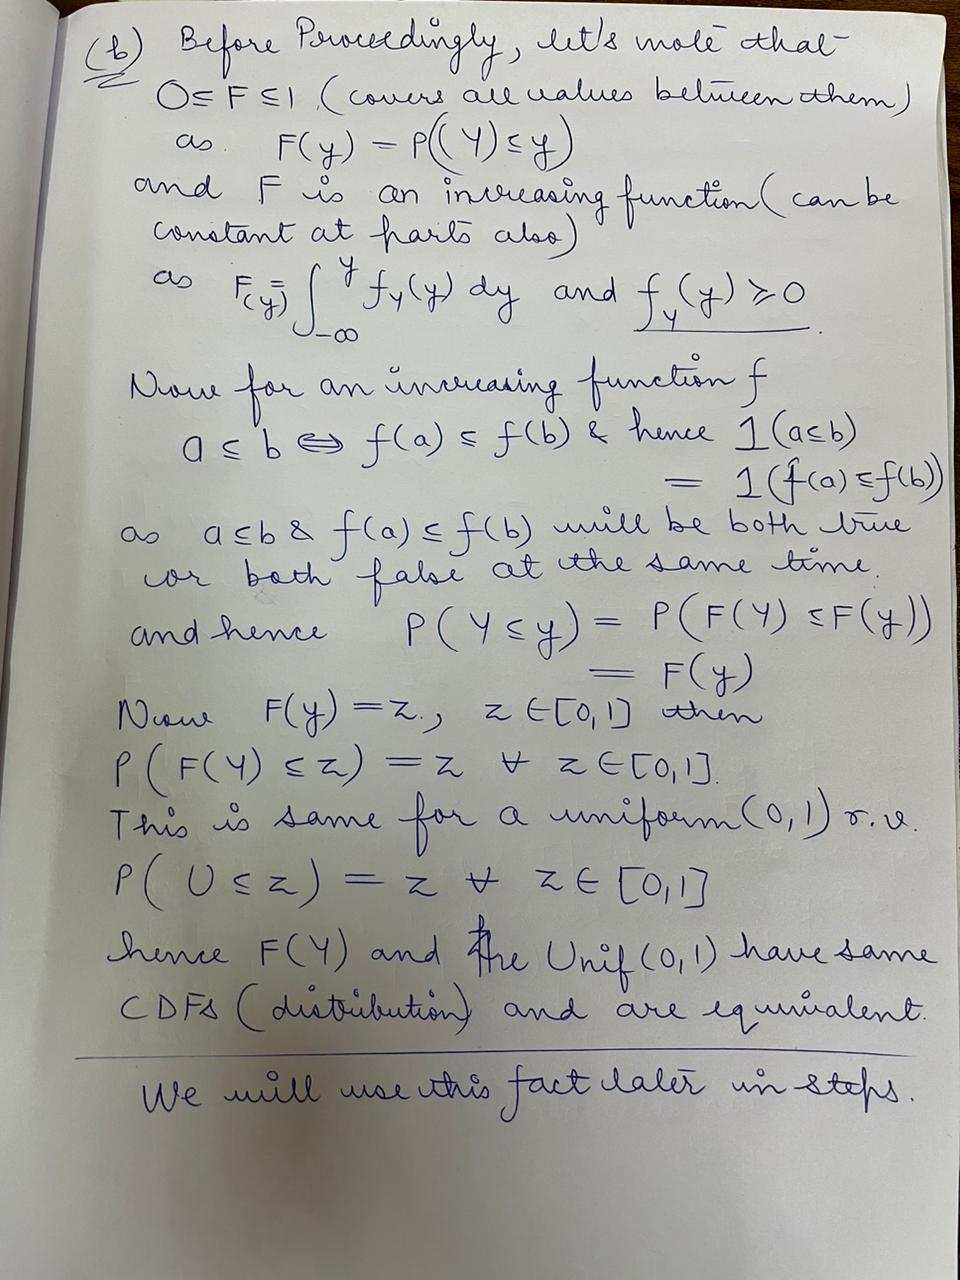 (b) Before Proceedingly, let's note that
0 ≤ F ≤ 1 (covers all values between them)
as F(y) = P((Y) ≤ y)
and F is an increasing function (can be
constant at parts also)
as F(y) = ∫_{-∞}^{y} f_y(y) dy and f_y(y) ≥ 0.
Now for an increasing function f
a ≤ b ⇔ f(a) ≤ f(b) & hence 1(a≤b)
= 1(f(a) ≤ f(b))
as a ≤ b & f(a) ≤ f(b) will be both true
or both false at the same time.
and hence P(Y ≤ y) = P(F(Y) ≤ F(y))
= F(y)
Now F(y) = z, z ∈ [0,1] then
P(F(Y) ≤ z) = z ∀ z ∈ [0,1].
This is same for a uniform (0,1) r.v.
P(U ≤ z) = z ∀ z ∈ [0,1]
hence F(Y) and the Unif (0,1) have same
CDFs (distribution) and are equivalent.
We will use this fact later in steps.